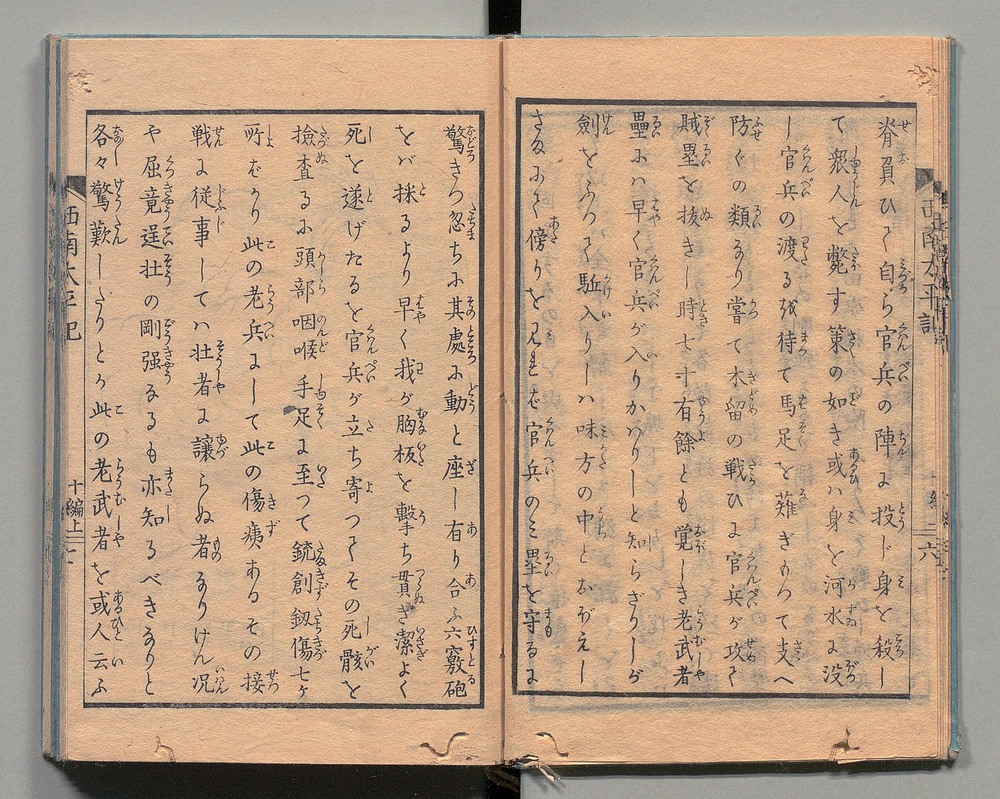 脊負ひて自ら官兵の陣に投じ身を殺し
て衆人を斃す策の如き或ハ身を河水に没
し官兵の渡るを待て馬足を薙ぎもつて支へ
防ぐの類なり嘗て木留の戦ひに官兵が攻て
賊塁を抜きし時七十有餘とも覚しき老武者
壘ハ早く官兵が入りかハりしと知らざりしが
劍をふつて駈入りしハ味方の中とおぼえし
さまにて傍りを見れば官兵のミ塁を守るに
驚きつ忽ち其處に動と座し有り合ふ六竅砲
をバ採るより早く我が胸板を撃ち貫ぎ潔よく
死を遂げたるを官兵が立ち寄つてその死骸を
撿査るに頭部咽喉手足に至つて銃創釼傷七ケ
所ばかり此の老兵にして此の傷痍あるその接
戦に従事してハ壮者に讓らぬ者なりけん况
や屈竟逞壮の剛强なるも亦知るべきなりと
各々驚歎したりとか此の老武者を或人云ふ
西南太平記
十編上
六
西南太平記
十編上
七